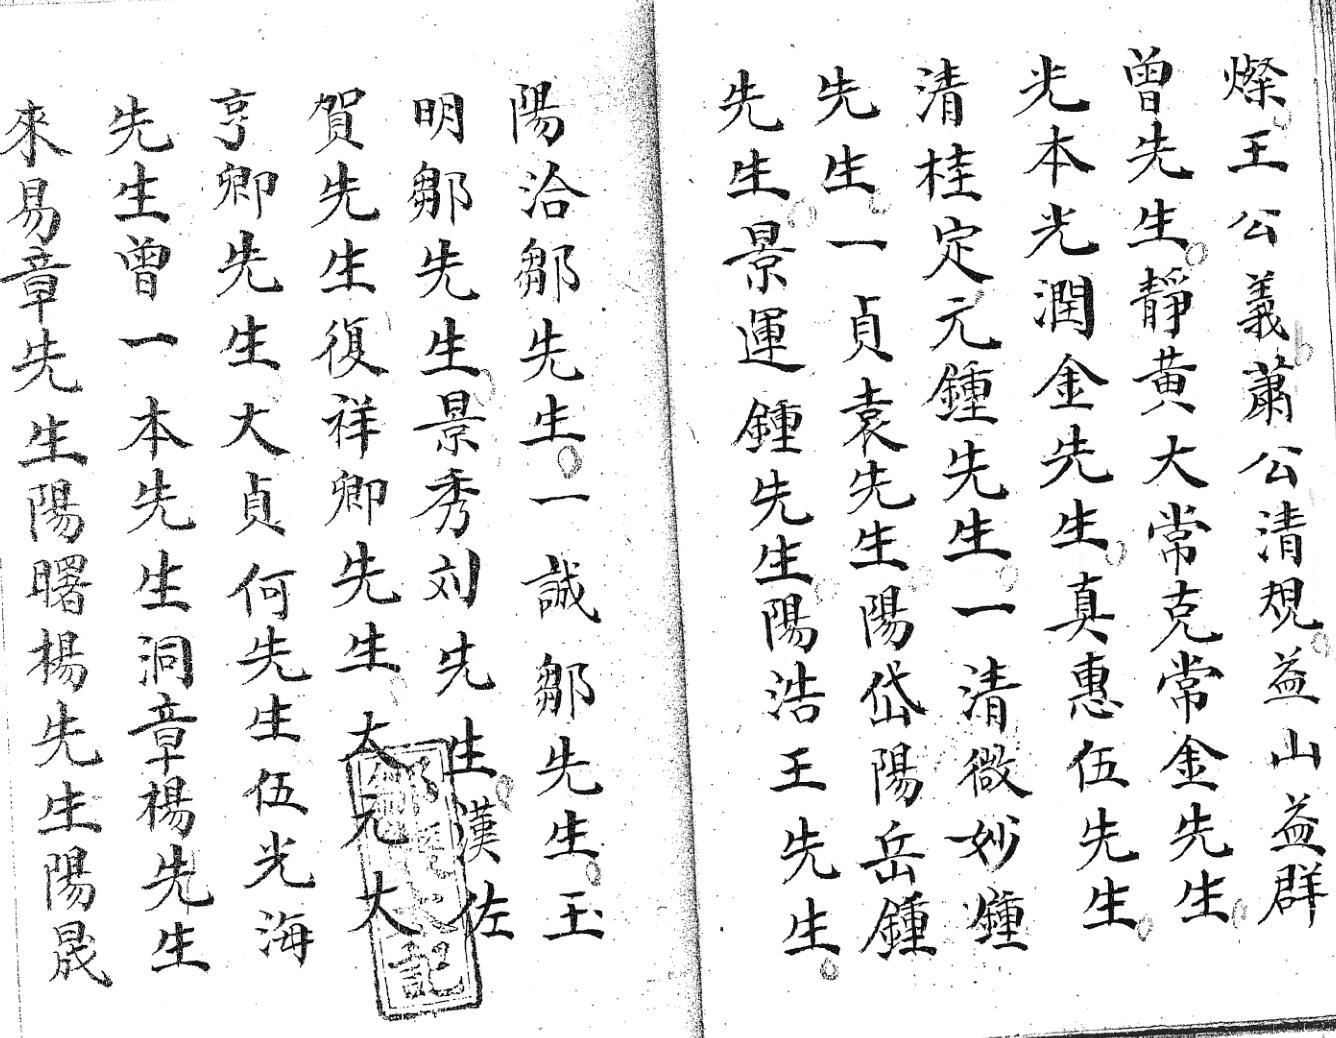 燦王公義蕭公清規益山益群
曾先生靜黃大常克常金先生
光本光潤金先生真惠伍先生
清桂定元鍾先生一清微妙鍾
先生一貞袁先生陽岱陽岳鍾
先生景運鍾先生陽浩王先生
陽洽鄒先生一誠鄒先生玉
明鄒先生景秀刘先生漢佐
賀先生復祥卿先生大元大
亨卿先生大貞何先生伍光海
先生曾一本先生洞章楊先生
來易章先生陽曙楊先生陽晟
記